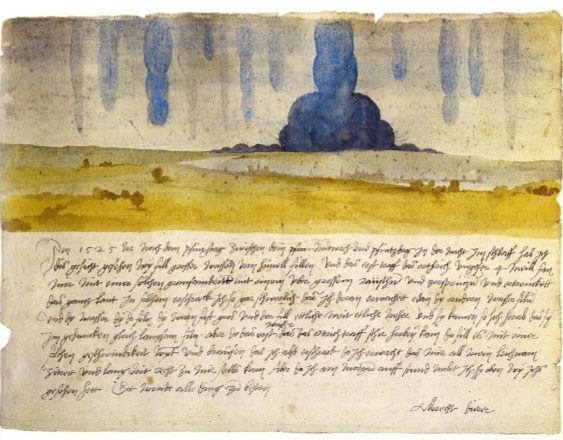 Im 1525 Jor nach dem pfinxstag zwischen dem Mitwoch und pfintzdag in der nacht im schlaff hab ich
dis gesicht gesehen wy fill grosser wassern vom himell fillen Und das erst traff das erthrich ungefer 4 meill fan
mir mit einer solchen grausamkeitt mit einem uber grossem raüschn und zersprützn und ertrenckett
das gantz lant In solchem erschrack ich so gar schwerlich das ich doran erwachett edan dy andern wasser filn
Und dy wasser dy do filn dy warn fast gros und der fill ettliche weit etliche neher und sy kamen so hoch herab das sy
im gedancken gleich langsam filn aber do das erst wasser das das ertrich traff schir herbey kam do fill es mit einer
sölchen geschwindikeit wynt und braüsen das ich also erschrack do ich erwacht das mir all mein leichnam
zitrett und lang nit recht zu mir selbs kam Aber do ich am morgn auff stund molet ich hy oben wy ichs
gesehen hett Got wende alle ding zu besten
Albrecht dürer